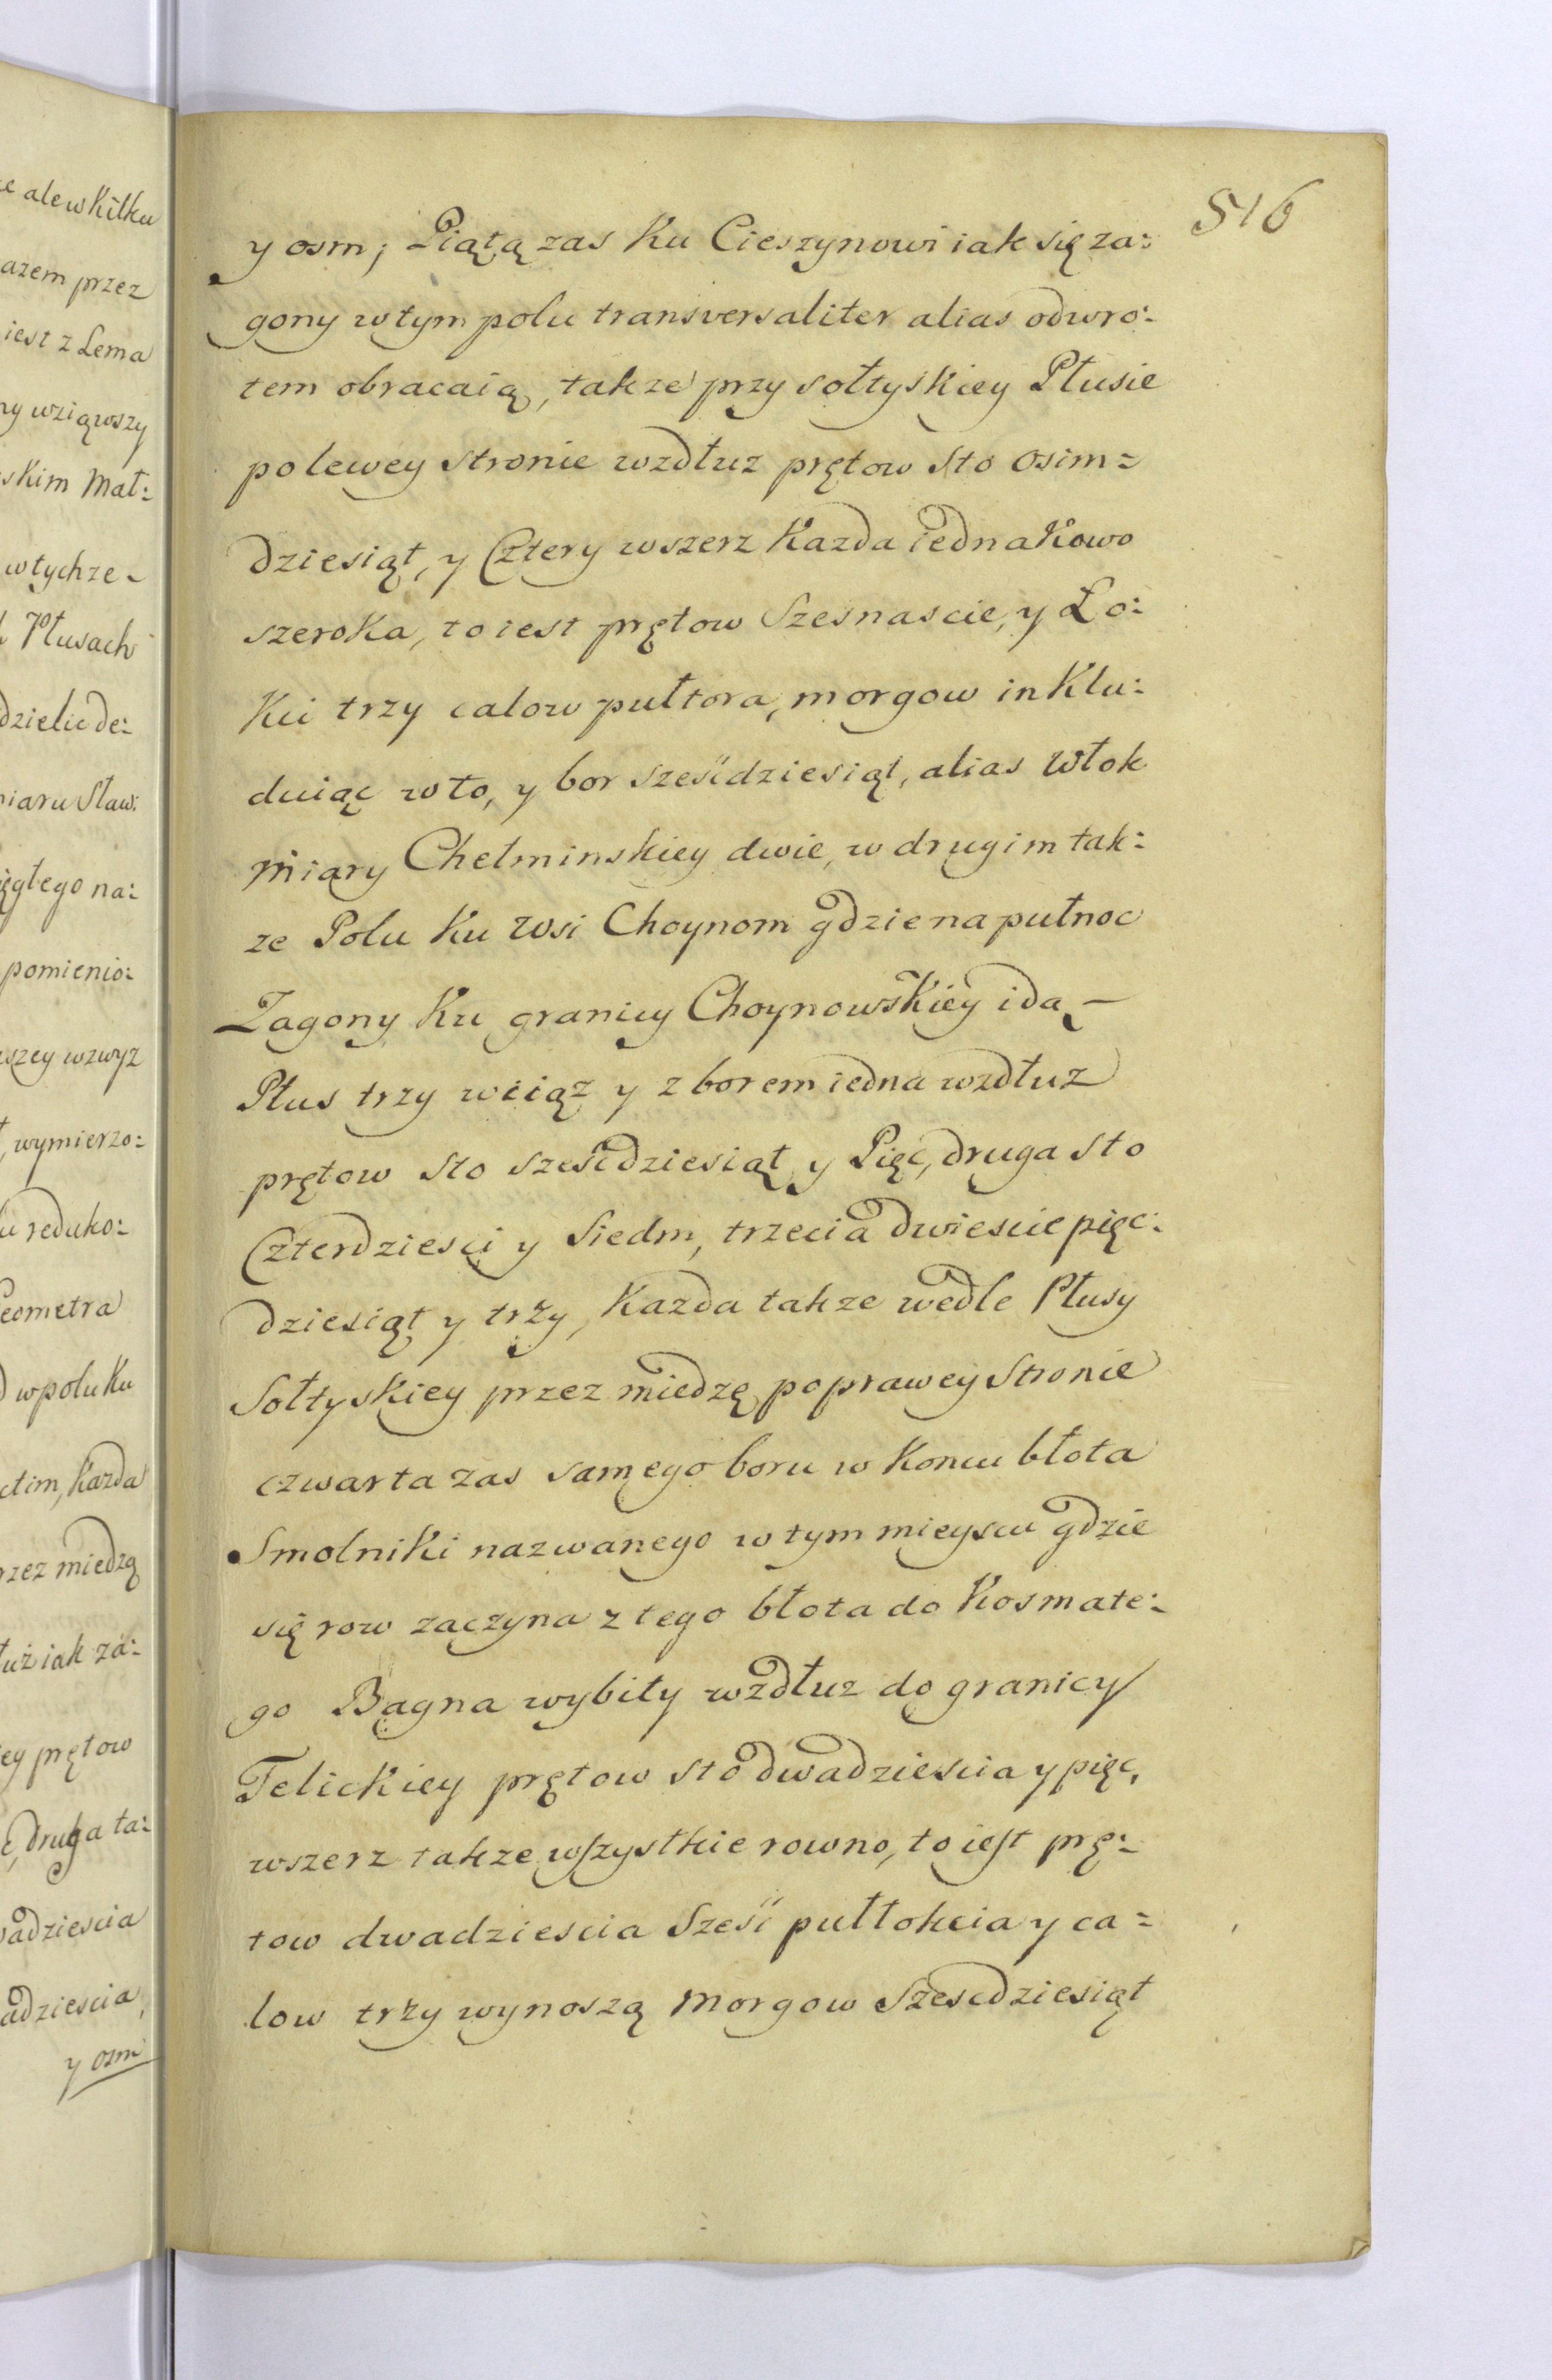 516
y osm; Piątą zas Ku Cieszynowi iak się za:
gony w tym polu transversaliter alias odwro:
tem obracaią, takze przy sołtyskiey Płusie
po lewey stronie wzdłuz prętow sto osim=
dziesiąt, y Cztery wszerz Kazda iednakowo
szeroka, to iest prętow Szesnascie, y Ło:
Kci trzy calow pułtora, morgow inklu:
duiąc w to, y bor sześćdziesiąt, alias Włok
miary Chełminskiey dwie, w drugim tak:
ze Polu Ku Wsi Choynom gdzie na pułnoc
Zagony Ku granicy Choynowskiey idą —
Płus trzy wciąz y z borem iedna wzdłuz
prętow sto sześćdziesiąt y Pięć, druga sto
Czterdziesci y Siedm, trzecia dwiescie pięc:
dziesiąt y trzy, Kazda takze wedle Płusy
Sołtyskiey przez miedzę po prawey stronie
czwarta zas samego boru w Koncu błota
Smolniki nazwanego w tym mieyscu gdzie
się row zaczyna z tego błota do Kosmate:
go Bagna wybity wzdłuz do granicy
Telickiey prętow sto dwadziescia y pięc,
wszerz takze wszystkie rowno, to iest prę:
tow dwadziescia Sześć pułłokcia y ca=
low trzy wynoszą morgow Szescdziesiąt
e ale w Kilku
azem przez
iest z Lema
ny wziąwszy
skim Mał:
w tychze -
Płusach
dzielic de:
miaru Staw:
ęgłego na:
pomienio:
szey wzwyz
, wymierzo:
u reduko:
Geometra
w polu Ku
ctim, Kazda
rzez miedzą
łuż iak za:
ey prętow
ć, druga ta:
wadziescia
adziescia,
y osm